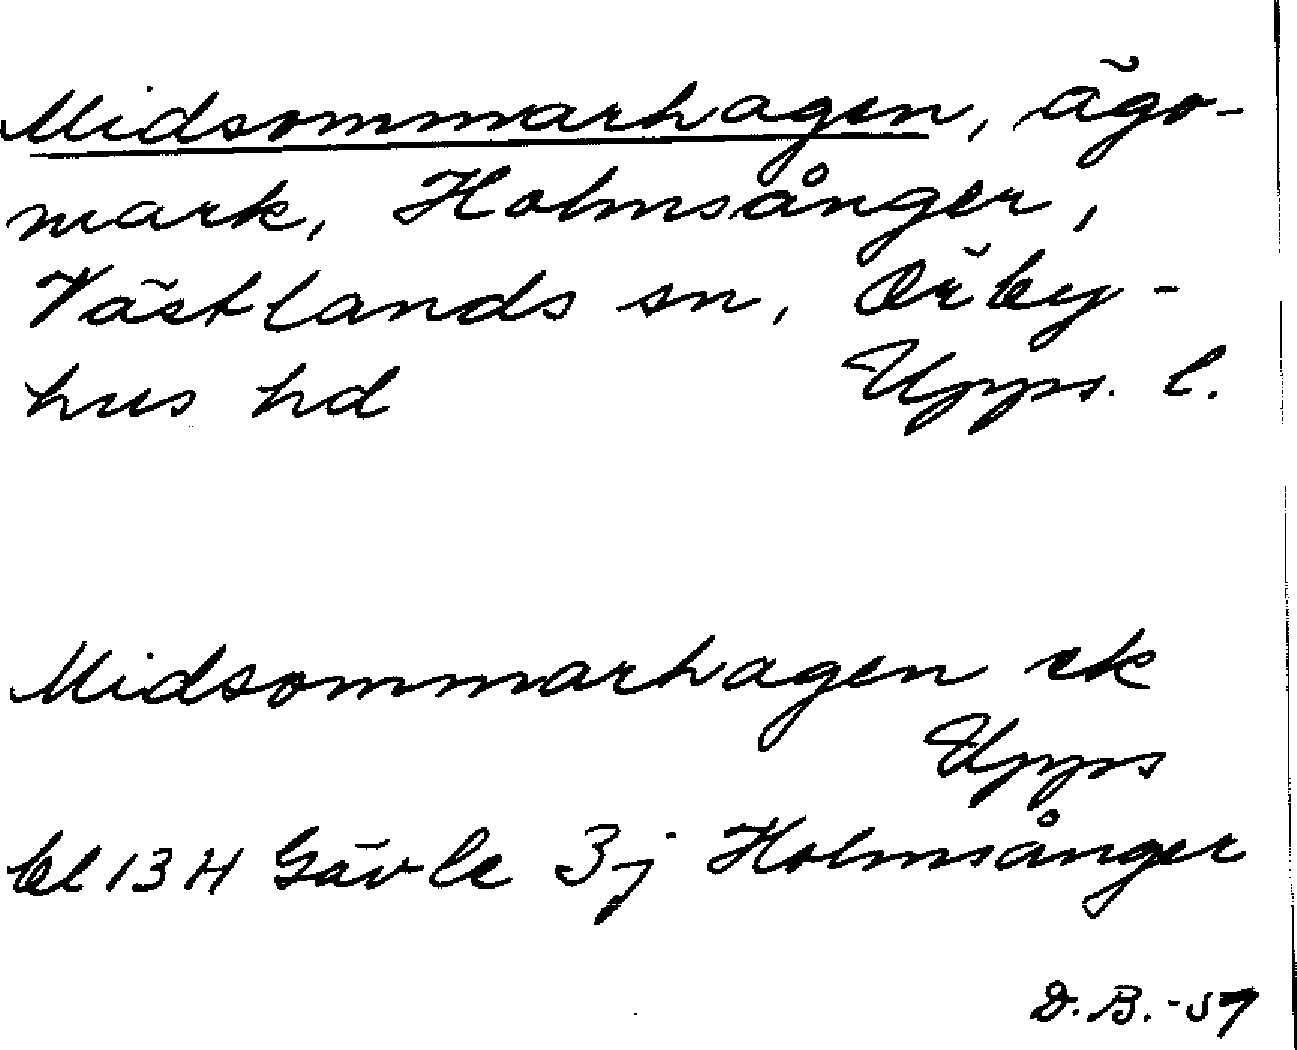 Midsommarhagen, ägo-
mark, Holmsånger,
Västlands sn, Örby-
hus hd Upps. l.
Midsommarhagen ek
Upps
bl 13 H Gävle 3j Holmsånger
D.B. -59